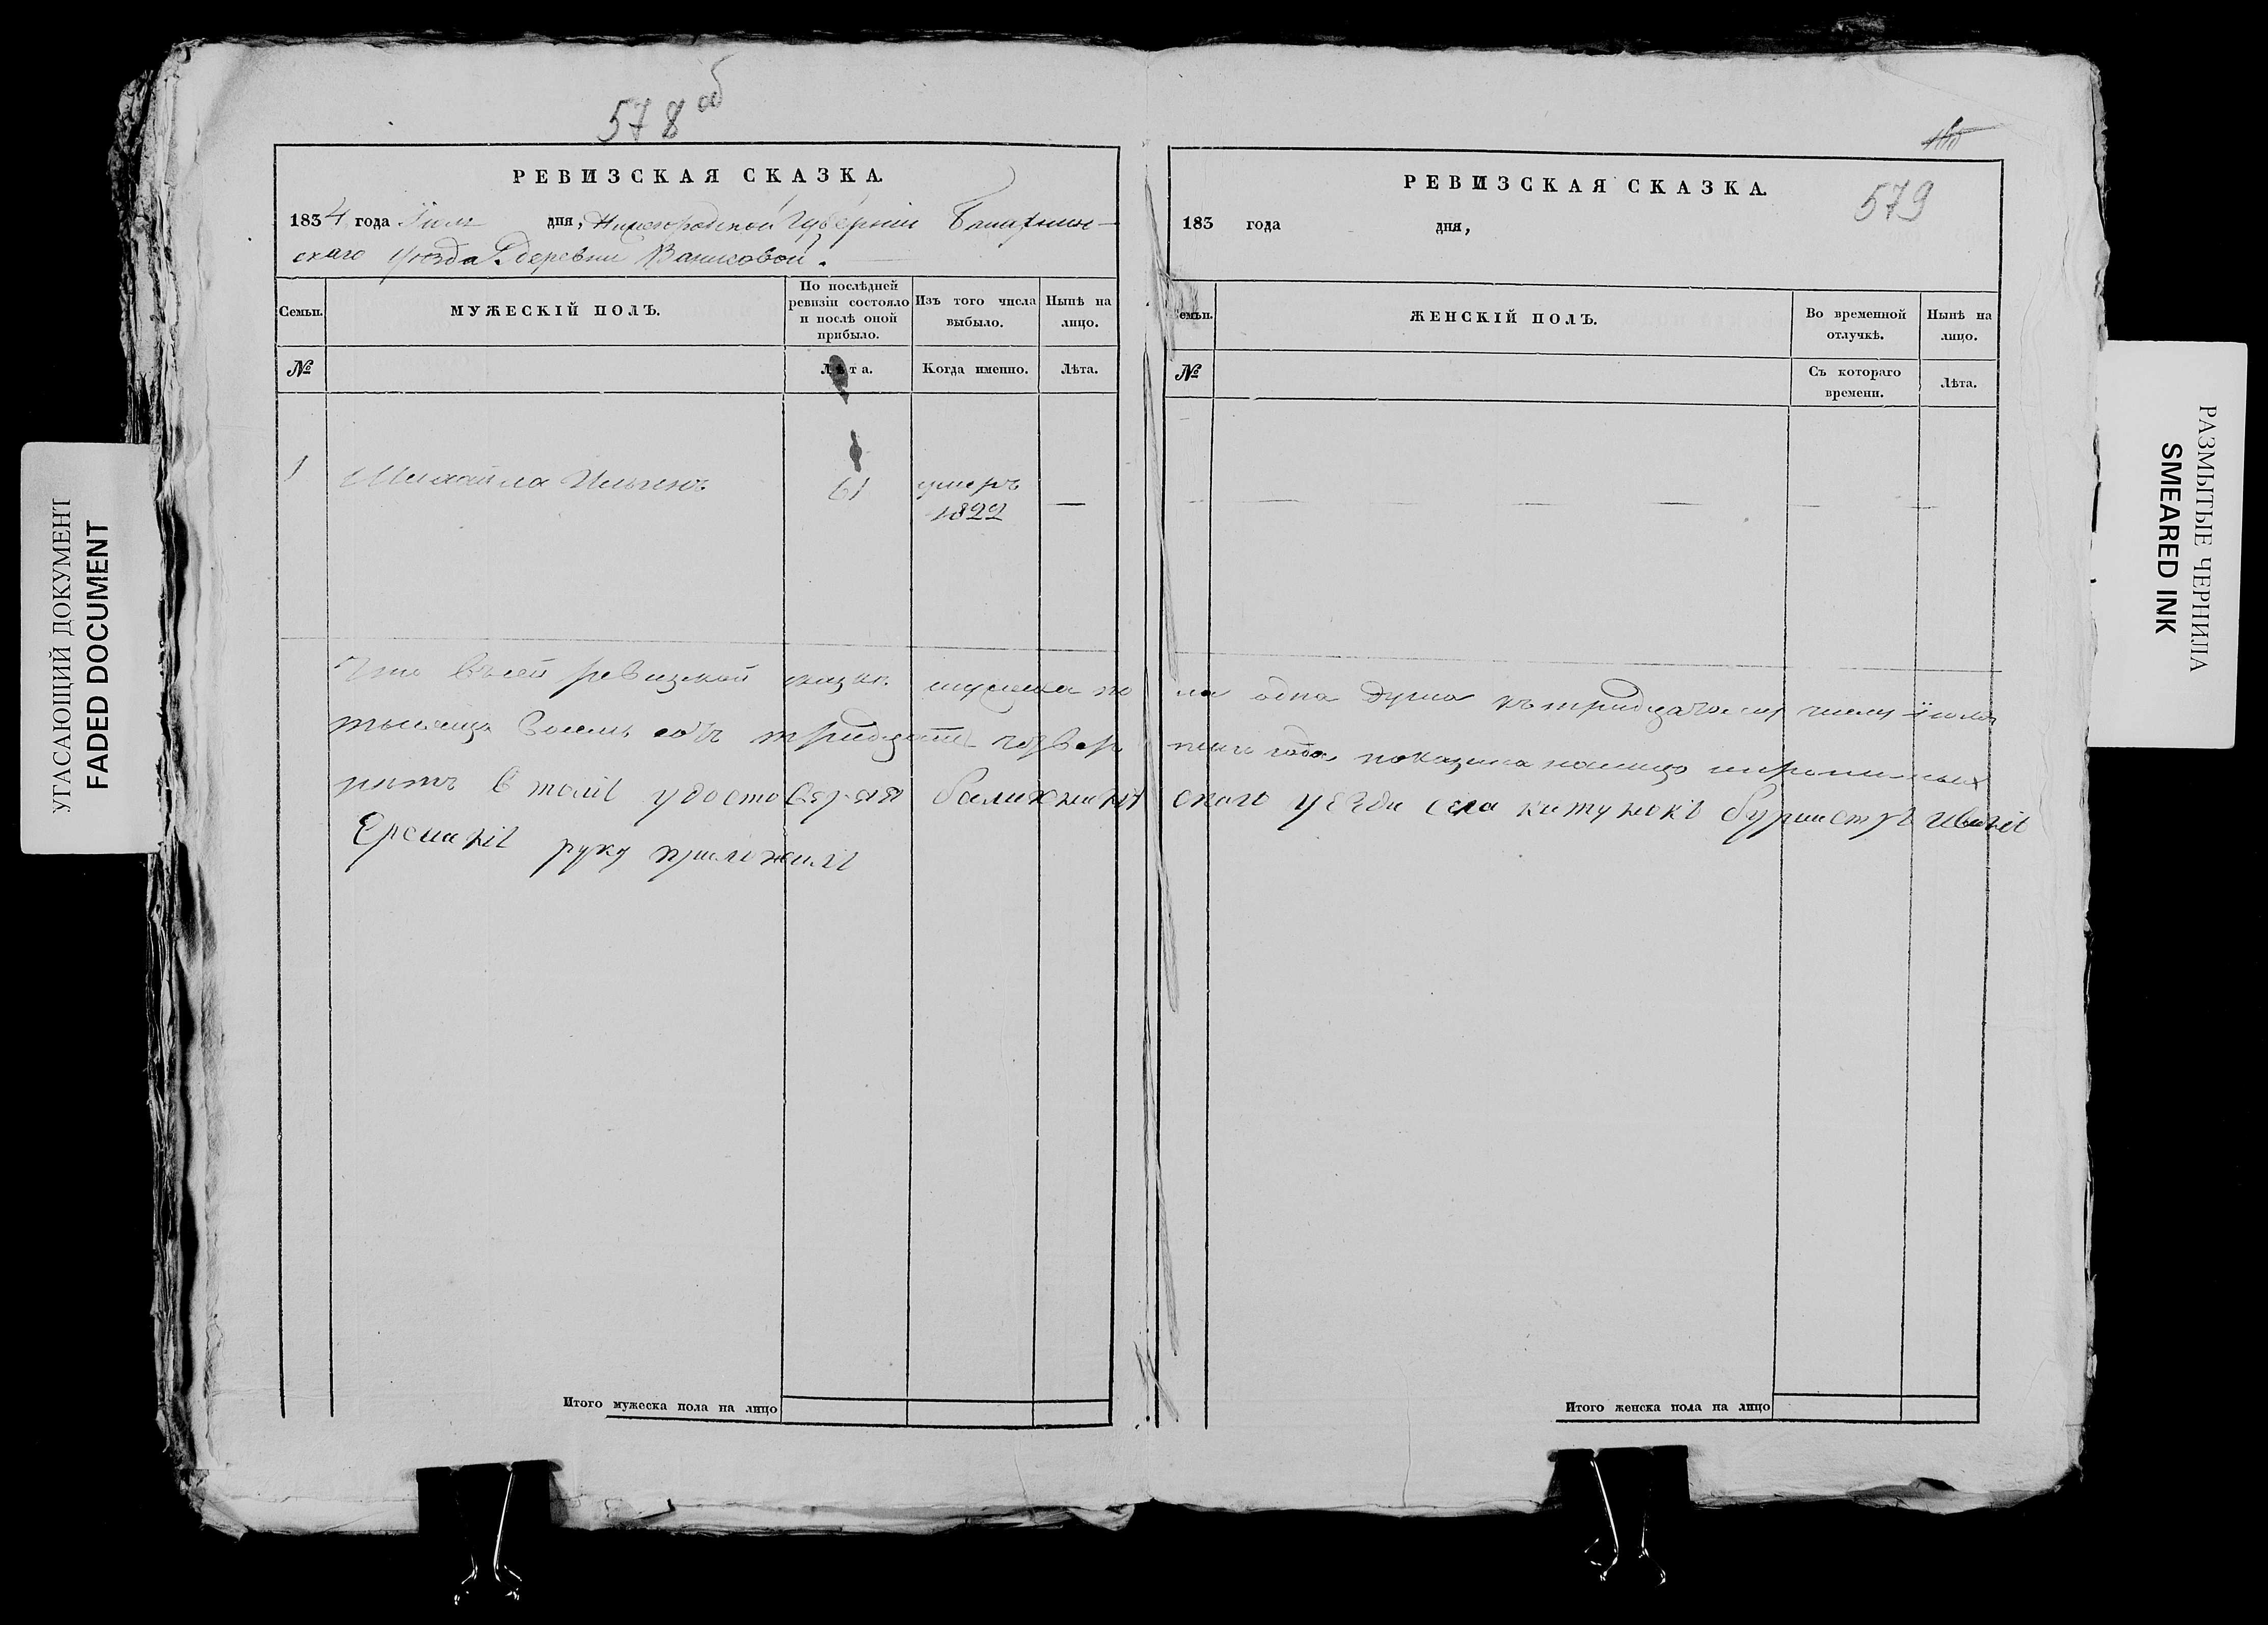 578 об
РЕВИЗСКАЯ СКАЗКА.
1834 года Іюля дня, Нижегородской Губерніи Балахнин-
скаго Уѣзда деревни Ванисовой.
Семьи.
МУЖЕСКІЙ ПОЛЪ.
По послѣдней
ревизіи состояло
и послѣ оной
прибыло.
Изъ того числа
выбыло.
Нынѣ на
лицо.
№
Лѣта.
Когда именно.
Лѣта.
1 Михайла Ильинъ 61 умеръ —
1822
579
РЕВИЗСКАЯ СКАЗКА.
183 года дня,
Семьи.
ЖЕНСКІЙ ПОЛЪ.
Во временной
отлучкѣ.
Нынѣ на
лицо.
№
Съ котораго
времени.
Лѣта.
Что в сей ревизской сказке мужеска по ла одна душа къ тридцатому числу Іюля
тысяща восемь сотъ тридцать четвер
года показана налицо
в томъ удостоверяя балахнин скаго уезда села катунокъ бурмистръ Иванъ
руку приложилъ
Итого мужеска пола на лицо
Итого женска пола на лицо
УГАСАЮЩИЙ ДОКУМЕНТ
FADED DOCUMENT
РАЗМЫТЫЕ ЧЕРНИЛА
SMEARED INK